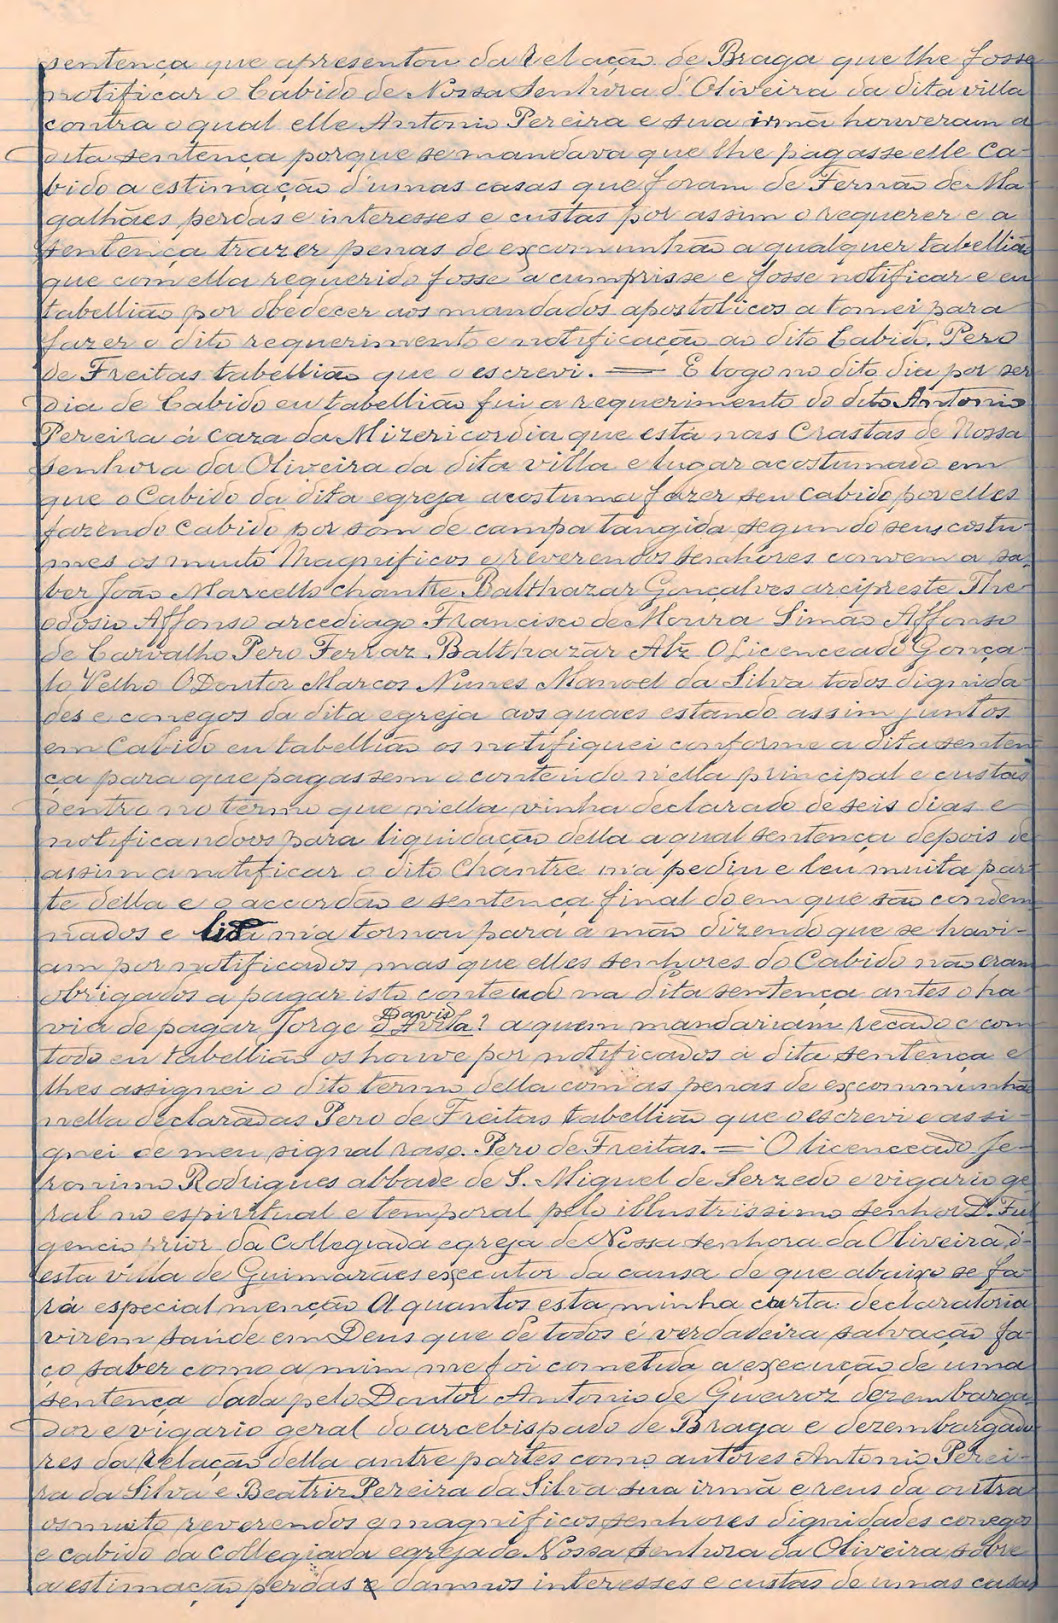 sentença que apresentou da Relação de Braga que lhe fosse
notificar o Cabido de Nossa Senhora d'Oliveira da dita villa
contra o qual elle Antonio Pereira e sua irmã houveram a
dita sentença porque se mandava que lhe pagasse elle Ca-
bido a estimação d'umas casas que foram de Fernão de Ma-
galhães perdas e interesses e custas por assim o requerer e a
sentença trazer penas de excomunhão a qualquer tabellião
que com ella requerido fosse a cumprisse e fosse notificar e eu
tabellião por obedecer aos mandados apostolicos a tomei para
fazer o dito requerimento e notificação ao dito Cabido. Pero
de Freitas tabellião que o escrevi. = E logo no dito dia por ser
dia de Cabido eu tabellião fui a requerimento do dito Antonio
Pereira á caza da Mizericordia que está nas Crastas de Nossa
Senhora da Oliveira da dita villa e lugar acostumado em
que o Cabido da dita egreja acostuma fazer seu cabido por elles
fazendo Cabido por som de campa tangida segundo seus costu-
mes os muito Magnificos e reverendos senhores convem a sa-
ber João Marcello chantre Balthazar Gonçalves arcipreste The-
odosio Affonso arcediago Francisco de Moura Simão Affonso
de Carvalho Pero Ferraz Balthazar Alz O Licenceado Gonça-
lo Velho O Doutor Marcos Nunes Manoel da Silva todos dignida-
des e conegos da dita egreja aos quaes estando assim juntos
em Cabido eu tabellião os notifiquei conforme a dita senten-
ça para que pagassem o conteudo n'ella principal e custas
dentro no termo que n'ella vinha declarado de seis dias e
notificandoos para liquidação della a qual sentença depois de
assim a notificar o dito Chantre m'a pediu e leu muita par-
te della e o accordão e sentença final do em que são condem-
nados e lida m'a tornou para a mão dizendo que se havi-
am por notificados mas que elles senhores do Cabido não eram
obrigados a pagar isto conteudo na dita sentença antes o ha-
via de pagar Jorge d'Avila? David a quem mandariam recado e com
todo eu tabellião os houve por notificados a dita sentença e
lhes assignei o dito termo della com as penas de excommunhão
nella declaradas Pero de Freitas tabellião que o escrevi e assi-
gnei de meu signal raso. Pero de Freitas. = O licenceado Je-
ronimo Rodrigues abbade de S. Miguel de Serzedo e vigario ge-
ral no espiritual e temporal pelo illustrissimo senhor D. Ful-
gencio prior da Collegiada egreja de Nossa Senhora da Oliveira d'-
esta villa de Guimarães executor da causa de que abaixo se fa-
rá especial menção A quantos esta minha carta declaratoria
virem saúde em Deus que de todos é verdadeira salvação fa-
ço saber como a mim me foi cometida a execução de uma
sentença dada pelo Doutor Antonio de Gueiroz dezembarga-
dor e vigario geral do arcebispado de Braga e dezembargado-
res da Relação della antre partes como autores Antonio Perei-
ra da Silva e Beatriz Pereira da Silva sua irmã e reus da outra
os muito reverendos e magnificos senhores dignidades conegos
e cabido da collegiada egreja de Nossa Senhora da Oliveira sobre
a estimação perdas e damnos interesses e custas de umas casas